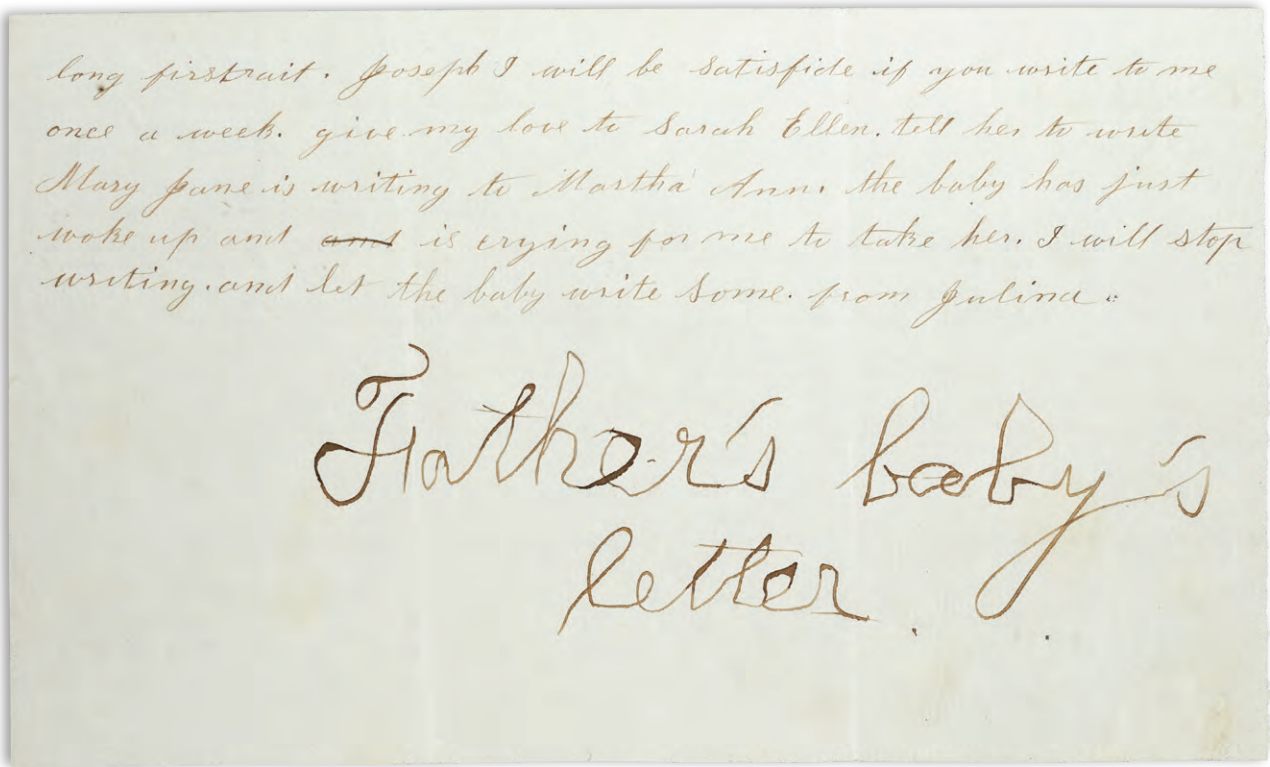 long firstrait. Joseph I will be satisfide if you write to me
once a week. give my love to Sarah Ellen. tell her to write
Mary Jane is writing to Martha Ann. the baby has just
woke up and and is crying for me to take her. I will stop
writing. and let the baby write some. from Julina.
Father's baby's
letter.